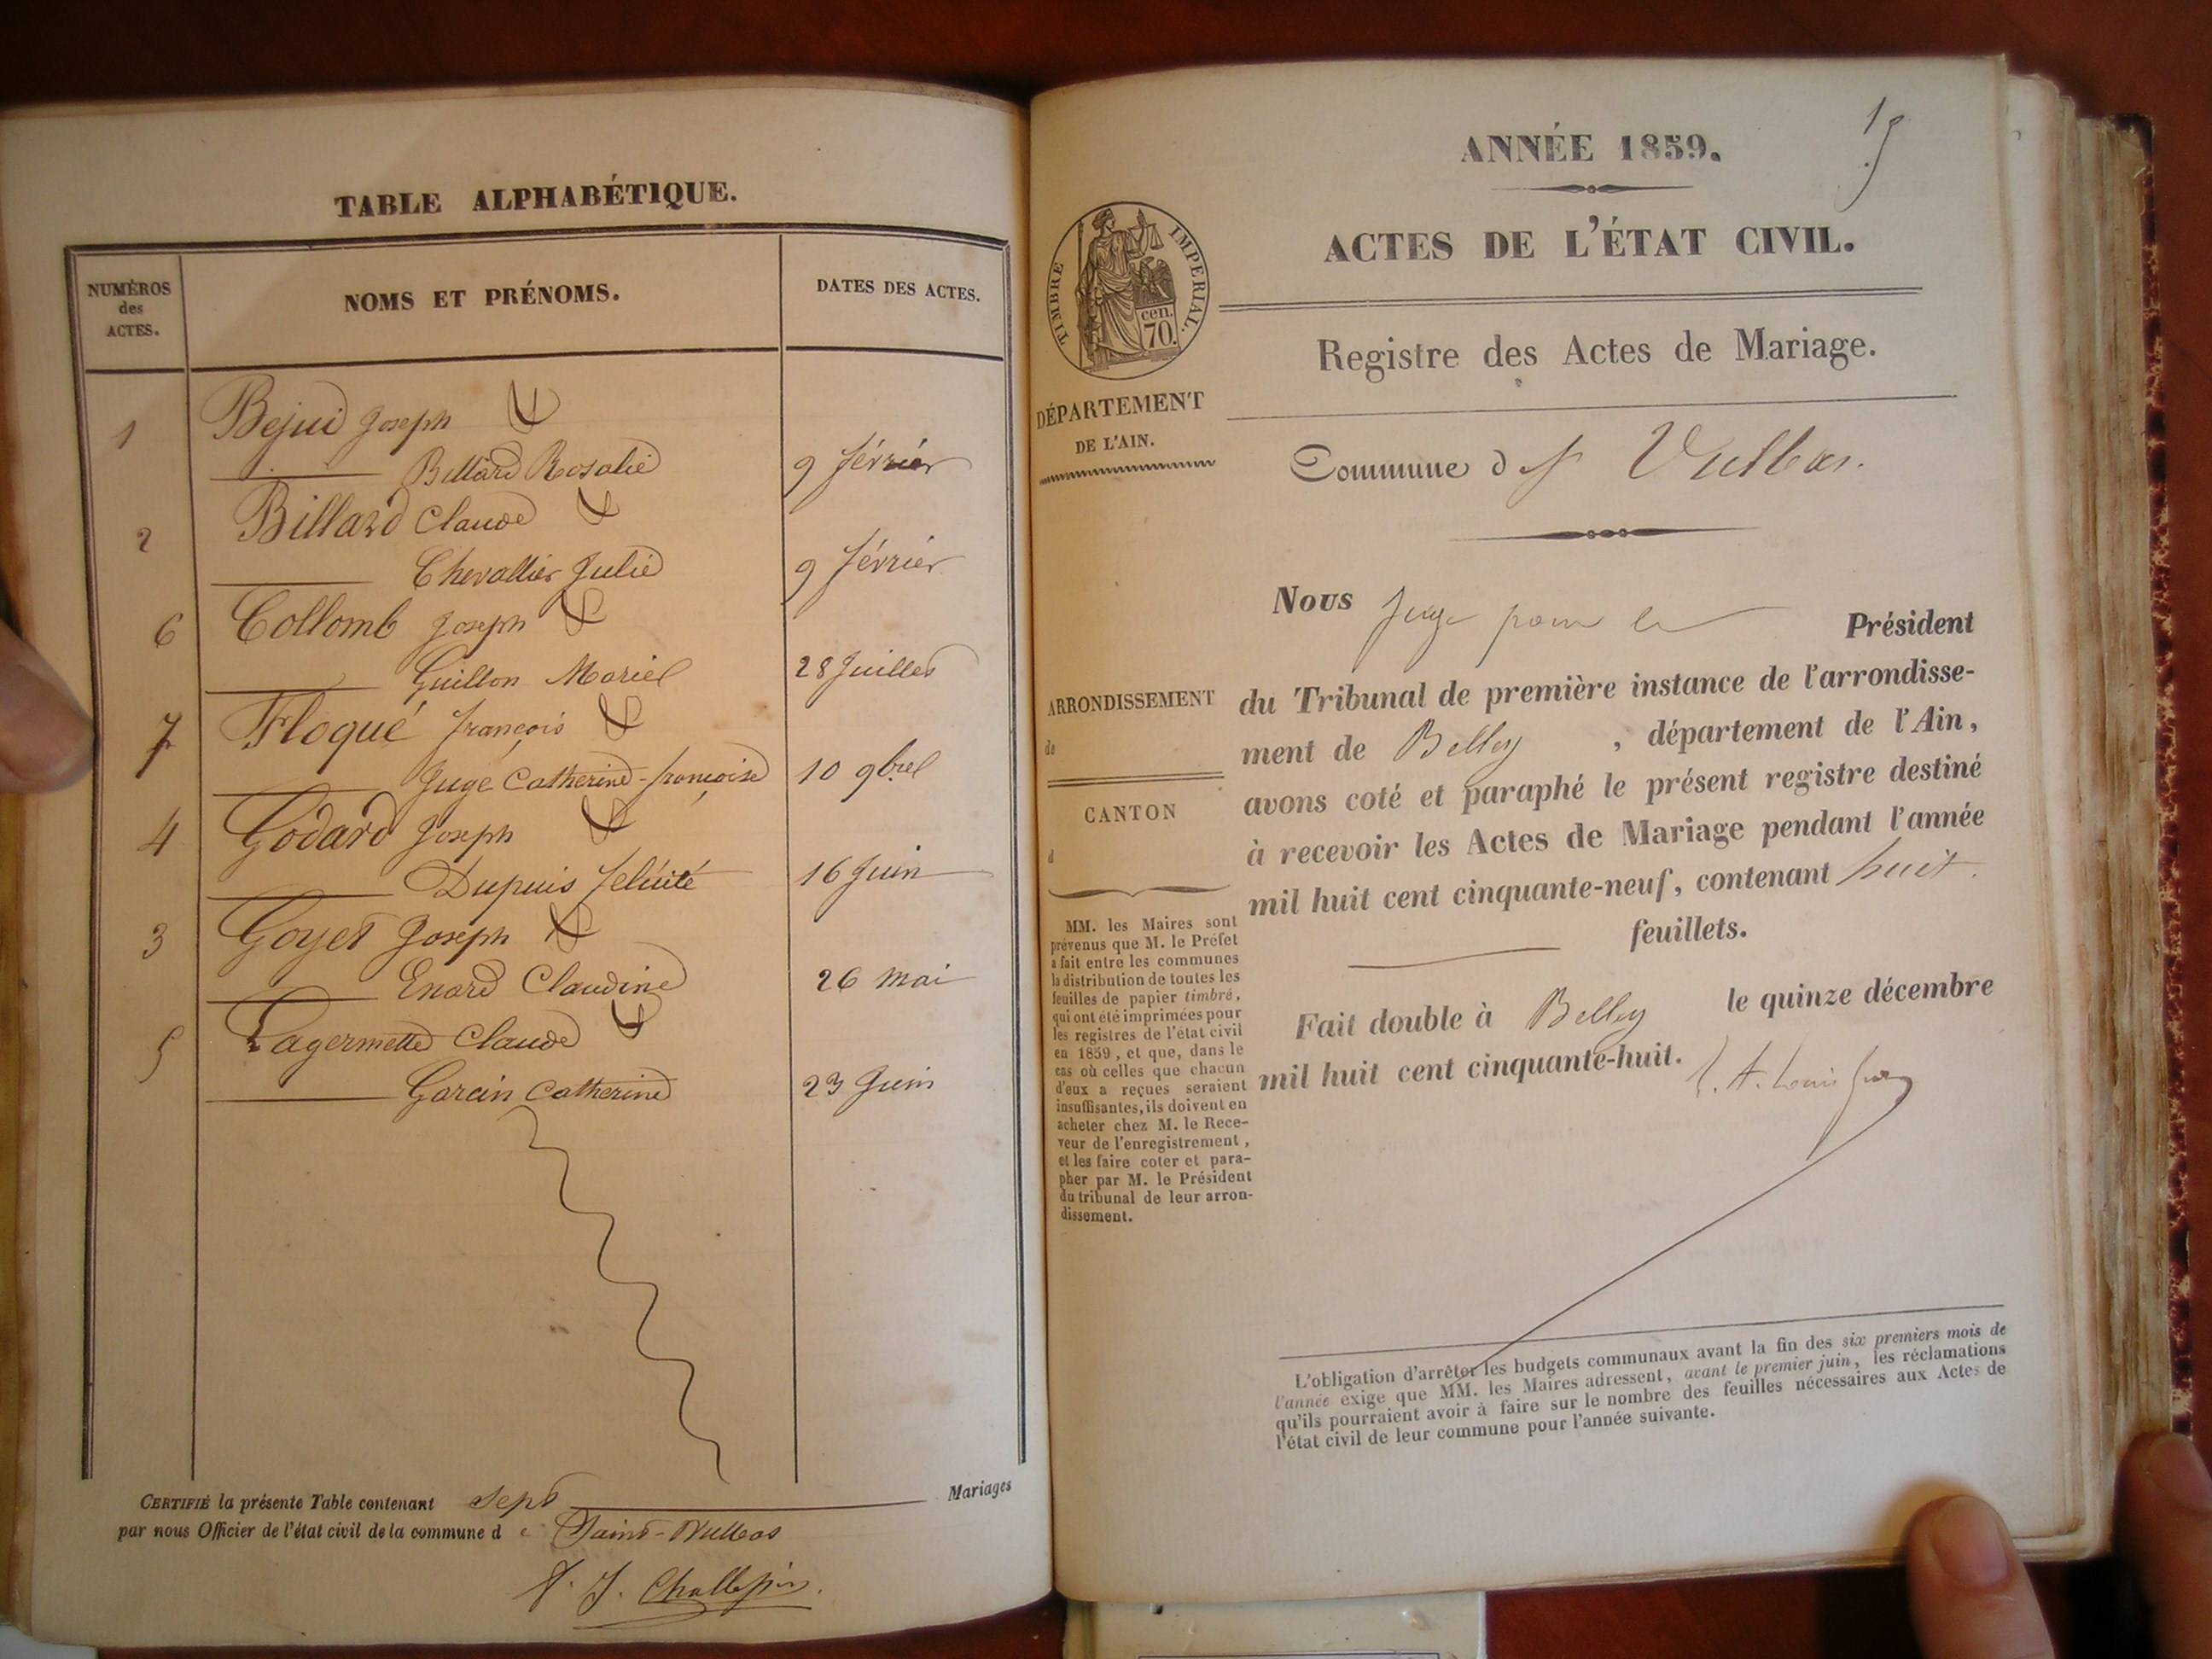 TABLE ALPHABÉTIQUE.
NUMÉROS
des
ACTES.
NOMS ET PRÉNOMS.
DATES DES ACTES.
1 Bejui Joseph
Billard Rosalie 9 février
2 Billard Claude
Chevallier Julie 9 février
6 Collomb Joseph
Guillon Mariel 28 Juillet
7 Floqué françois
Juge Catherine-françoise 10 9bre
4 Godard Joseph
Dupuis félicité 16 Juin
3 Goyet Joseph
Enard Claudine 26 mai
5 Lagermette Claude
Garcin Catherine 23 Juin
CERTIFIÉ la présente Table contenant Sept Mariages
par nous Officier de l'état civil de la commune d e Saint-Vulbas
ANNÉE 1859.
ACTES DE L'ÉTAT CIVIL.
TIMBRE IMPERIAL.
cen.
70.
Registre des Actes de Mariage.
DÉPARTEMENT
DE L'AIN.
Commune d St Vulbas.
Nous Juge pour le Président
du Tribunal de première instance de l'arrondisse-
ment de Belley , département de l'Ain,
avons coté et paraphé le présent registre destiné
à recevoir les Actes de Mariage pendant l'année
mil huit cent cinquante-neuf, contenant huit
feuillets.
Fait double à Belley le quinze décembre
mil huit cent cinquante-huit.
ARRONDISSEMENT
de
CANTON
d
MM. les Maires sont
prévenus que M. le Préfet
a fait entre les communes
la distribution de toutes les
feuilles de papier timbré,
qui ont été imprimées pour
les registres de l'état civil
en 1859, et que, dans le
cas où celles que chacun
d'eux a reçues seraient
insuffisantes, ils doivent en
acheter chez M. le Rece-
veur de l'enregistrement,
et les faire coter et para-
pher par M. le Président
du tribunal de leur arron-
dissement.
L'obligation d'arrêter les budgets communaux avant la fin des six premiers mois de
l'année exige que MM. les Maires adressent, avant le premier juin, les réclamations
qu'ils pourraient avoir à faire sur le nombre des feuilles nécessaires aux Actes de
l'état civil de leur commune pour l'année suivante.